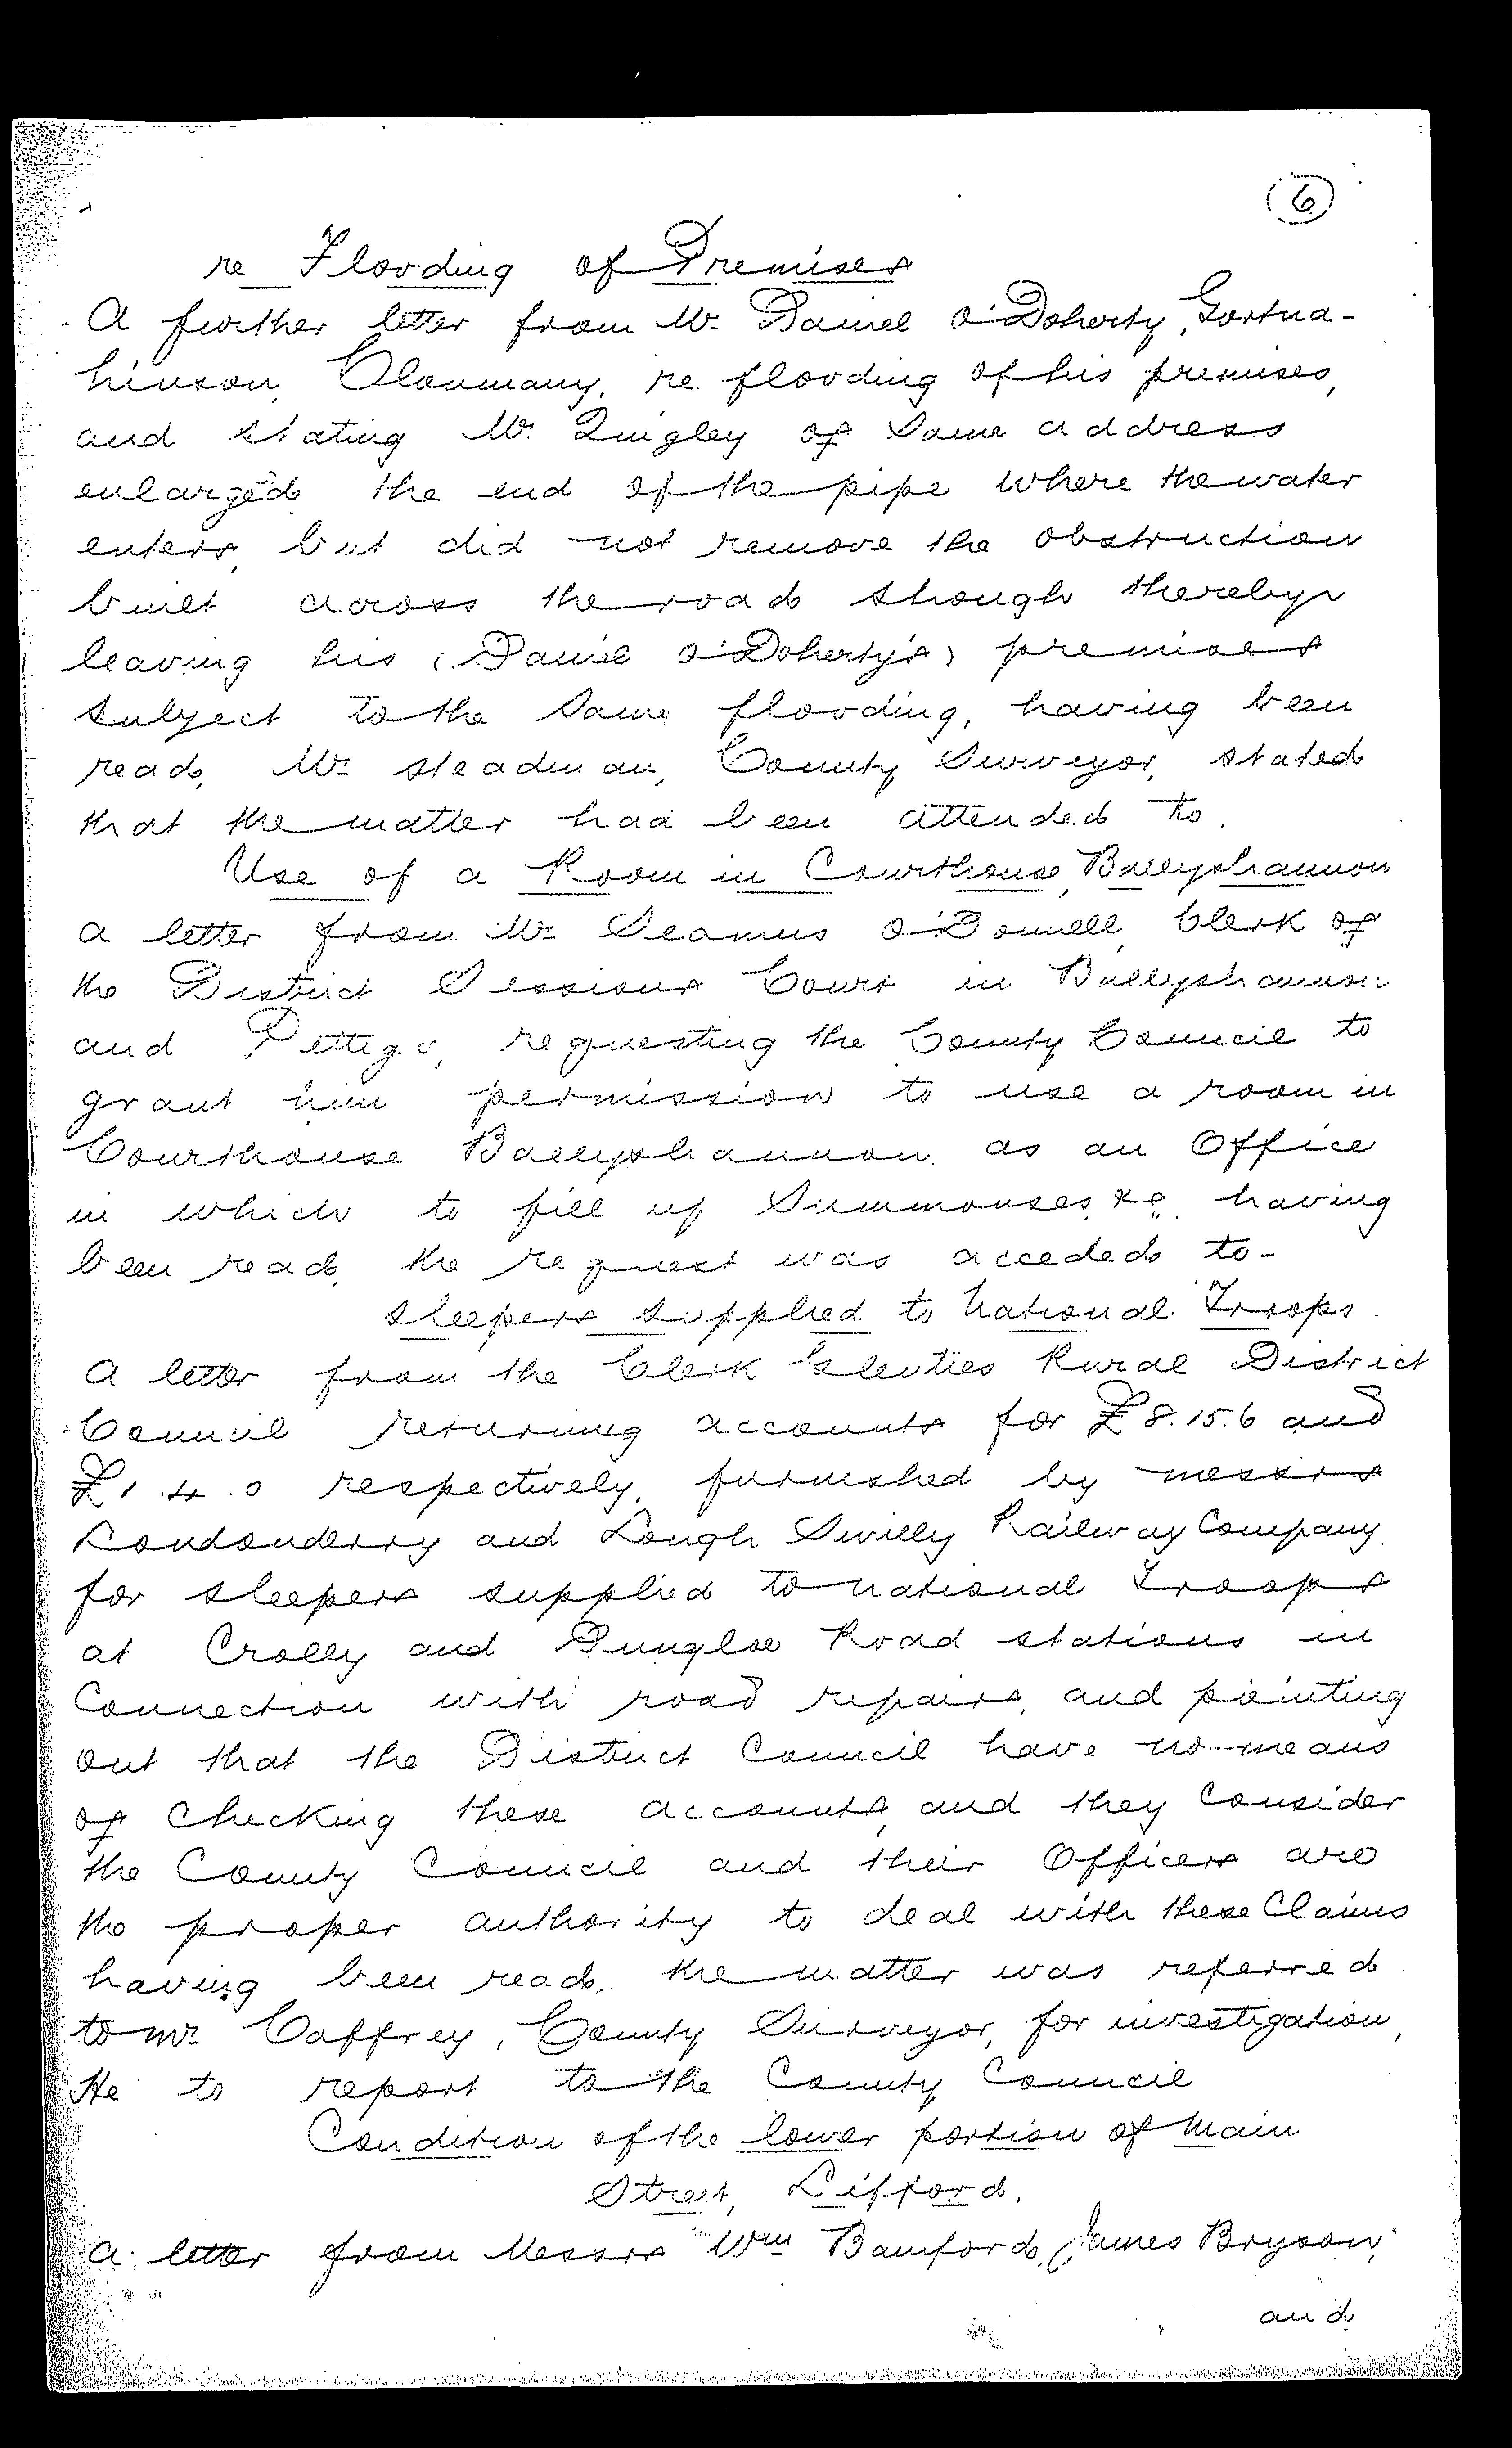 6
re Flooding of Premises
A further letter from Mr. Daniel O'Doherty, Gortna-
hinson, Clonmany, re. flooding of his premises,
and stating Mr. Quigley of same address
enlarged the end of the pipe where the water
enters, but did not remove the obstruction
built across the road though thereby
leaving his (Daniel O'Doherty's) premises
subject to the same flooding, having been
read, Mr. Steadman, County Surveyor, stated
that the matter had been attended to.
Use of a Room in Courthouse, Ballyshannon
A letter from Mr. Seamus O'Donnell, Clerk of
the District Sessions Court in Ballyshannon
and Pettigo, requesting the County Council to
grant him permission to use a room in
Courthouse Ballyshannon as an Office
in which to fill up Summonses, &c. having
been read, the request was acceded to-
Sleepers supplied to National Troops.
A letter from the Clerk Glenties Rural District
Council returning accounts for £8.15.6 and
£1.4.0 respectively, furnished by messrs
Londonderry and Lough Swilly Railway Company
for sleepers supplied to national Troops
at Crolly and Dungloe Road stations in
Connection with road repairs, and pointing
out that the District Council have no means
of Checking these accounts, and they Consider
the County Council and their Officers are
the proper authority to deal with these Claims
having been read, the matter was referred
to Mr. Caffrey, County Surveyor, for investigation,
He to report to the County Council
Condition of the lower portion of Main
Street, Lifford.
A letter from Messrs Wm Bamford, James Bryson,
and